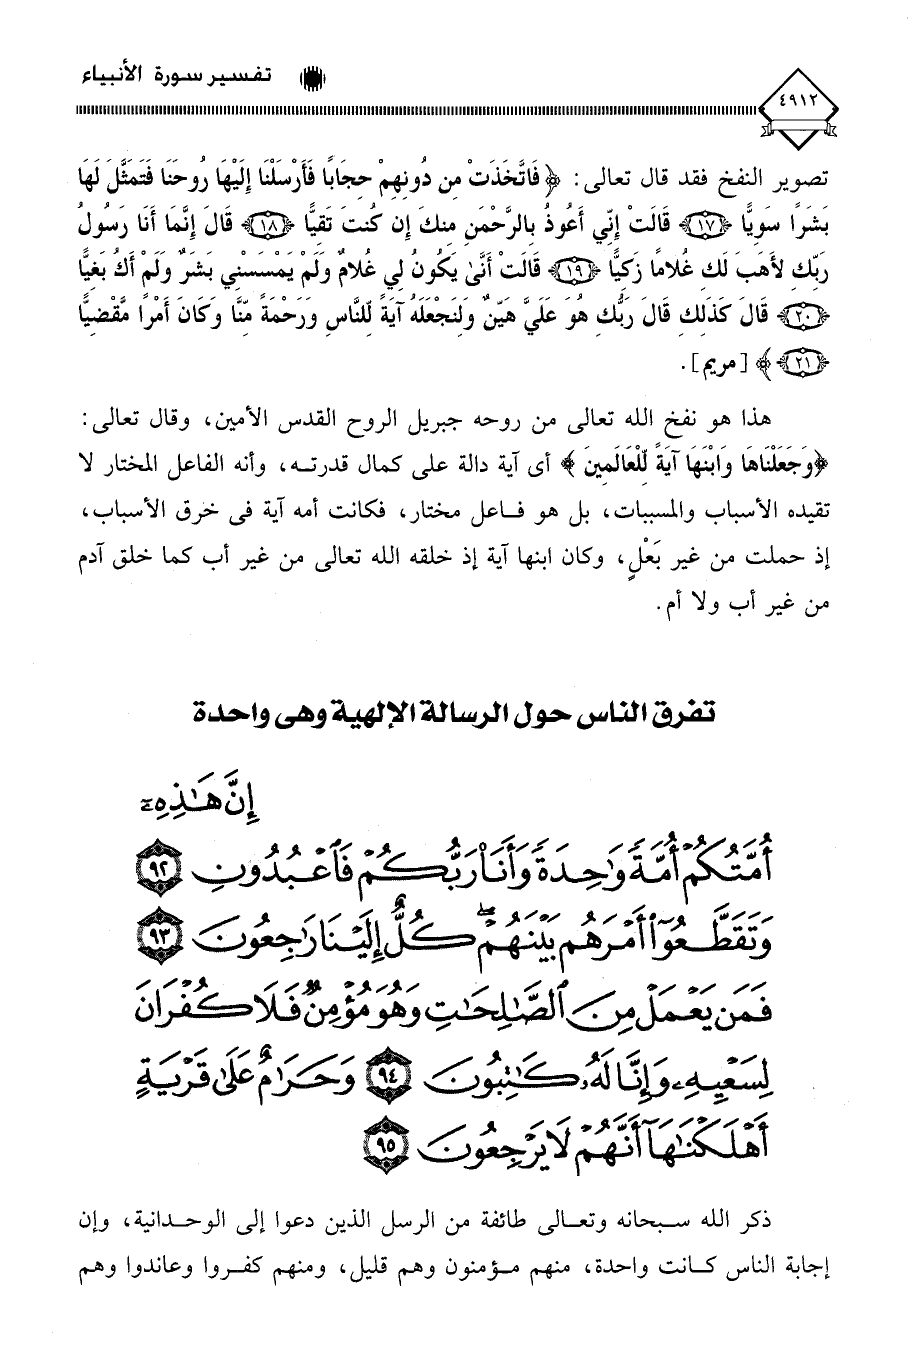 تفسير سورة الأنبياء
٤٩١٢
تصوير النفخ فقد قال تعالى: ﴿فَاتَّخَذَتْ مِن دُونِهِمْ حِجَابًا فَأَرْسَلْنَا إِلَيْهَا رُوحَنَا فَتَمَثَّلَ لَهَا
بَشَرًا سَوِيًّا ﴿١٧﴾ قَالَتْ إِنِّي أَعُوذُ بِالرَّحْمَنِ مِنكَ إِن كُنتَ تَقِيًّا ﴿١٨﴾ قَالَ إِنَّمَا أَنَا رَسُولُ
رَبِّكِ لأَهَبَ لَكِ غُلامًا زَكِيًّا ﴿١٩﴾ قَالَتْ أَنَّىٰ يَكُونُ لِي غُلامٌ وَلَمْ يَمْسَسْنِي بَشَرٌ وَلَمْ أَكُ بَغِيًّا
﴿٢٠﴾ قَالَ كَذَلِكِ قَالَ رَبُّكِ هُوَ عَلَيَّ هَيِّنٌ وَلِنَجْعَلَهُ آيَةً لِّلنَّاسِ وَرَحْمَةً مِّنَّا وَكَانَ أَمْرًا مَّقْضِيًّا
﴿٢١﴾﴾ [مريم].
هذا هو نفخ الله تعالى من روحه جبريل الروح القدس الأمين، وقال تعالى:
﴿وَجَعَلْنَاهَا وَابْنَهَا آيَةً لِّلْعَالَمِينَ﴾ أى آية دالة على كمال قدرته، وأنه الفاعل المختار لا
تقيده الأسباب والمسببات، بل هو فاعل مختار، فكانت أمه آية فى خرق الأسباب،
إذ حملت من غير بَعْلٍ، وكان ابنها آية إذ خلقه الله تعالى من غير أب كما خلق آدم
من غير أب ولا أم.
تفرق الناس حول الرسالة الإلهية وهى واحدة
إِنَّ هَـٰذِهِۦٓ
أُمَّتُكُمْ أُمَّةً وَٰحِدَةً وَأَنَا۠ رَبُّكُمْ فَٱعْبُدُونِ ٩٢
وَتَقَطَّعُوٓا۟ أَمْرَهُم بَيْنَهُمْ ۖ كُلٌّ إِلَيْنَا رَٰجِعُونَ ٩٣
فَمَن يَعْمَلْ مِنَ ٱلصَّـٰلِحَـٰتِ وَهُوَ مُؤْمِنٌ فَلَا كُفْرَانَ
لِسَعْيِهِۦ وَإِنَّا لَهُۥ كَـٰتِبُونَ ٩٤ وَحَرَٰمٌ عَلَىٰ قَرْيَةٍ
أَهْلَكْنَـٰهَآ أَنَّهُمْ لَا يَرْجِعُونَ ٩٥
ذكر الله سبحانه وتعالى طائفة من الرسل الذين دعوا إلى الوحدانية، وإن
إجابة الناس كانت واحدة، منهم مؤمنون وهم قليل، ومنهم كفروا وعاندوا وهم